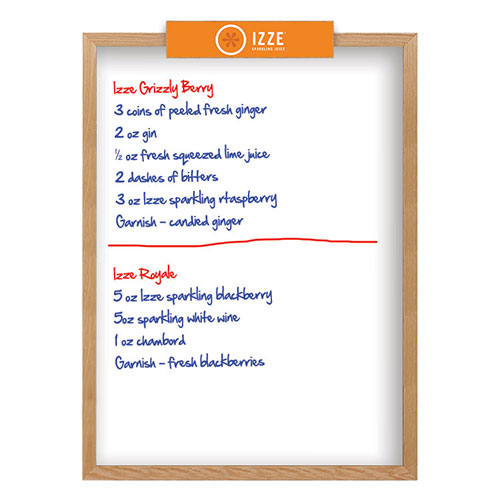 IZZE
SPARKLING JUICE
Izze Grizzly Berry
3 coins of peeled fresh ginger
2 oz gin
½ oz fresh squeezed lime juice
2 dashes of bitters
3 oz Izze sparkling rtaspberry
Garnish - candied ginger
Izze Royale
5 oz Izze sparkling blackberry
5oz sparkling white wine
1 oz chambord
Garnish - fresh blackberries